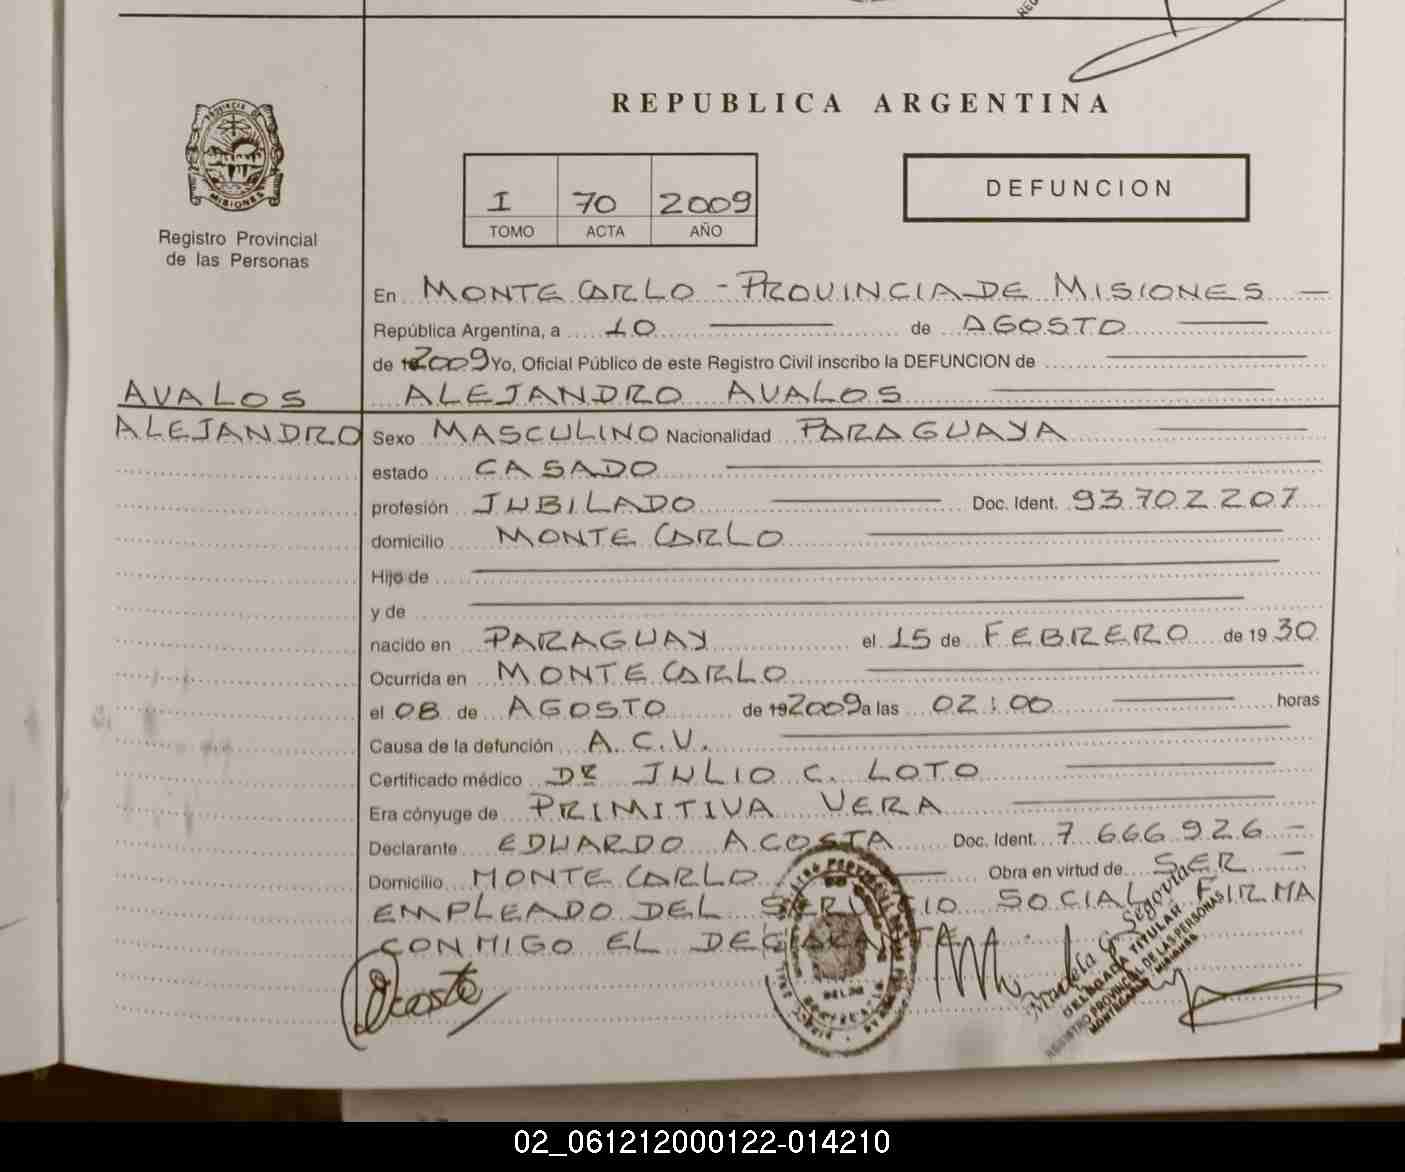 REPUBLICA ARGENTINA
PROVINCIA DE
MISIONES
Registro Provincial
de las Personas
I 70 2009
TOMO ACTA AÑO
DEFUNCION
En MONTECARLO - PROVINCIA DE MISIONES
República Argentina, a 10 de AGOSTO
de 2009 Yo, Oficial Público de este Registro Civil inscribo la DEFUNCION de
AVALOS
ALEJANDRO
ALEJANDRO AVALOS
Sexo MASCULINO Nacionalidad PARAGUAYA
estado CASADO
profesión JUBILADO Doc. Ident. 93.702.207
domicilio MONTECARLO
Hijo de
y de
nacido en PARAGUAY el 15 de FEBRERO de 1930
Ocurrida en MONTECARLO
el 08 de AGOSTO de 2009 a las 02:00 horas
Causa de la defunción A.C.V.
Certificado médico DR JULIO C. LOTO
Era cónyuge de PRIMITIVA VERA
Declarante EDUARDO ACOSTA Doc. Ident. 7.666.926 -
Domicilio MONTECARLO Obra en virtud de SER -
EMPLEADO DEL SERVICIO SOCIAL. FSIRMA
CONMIGO EL DECLARANTE
Acosta
Mariela G. Segovia
DELEGADA TITULAR
REGISTRO PROVINCIAL DE LAS PERSONAS
MONTECARLO MISIONES
02_061212000122-014210